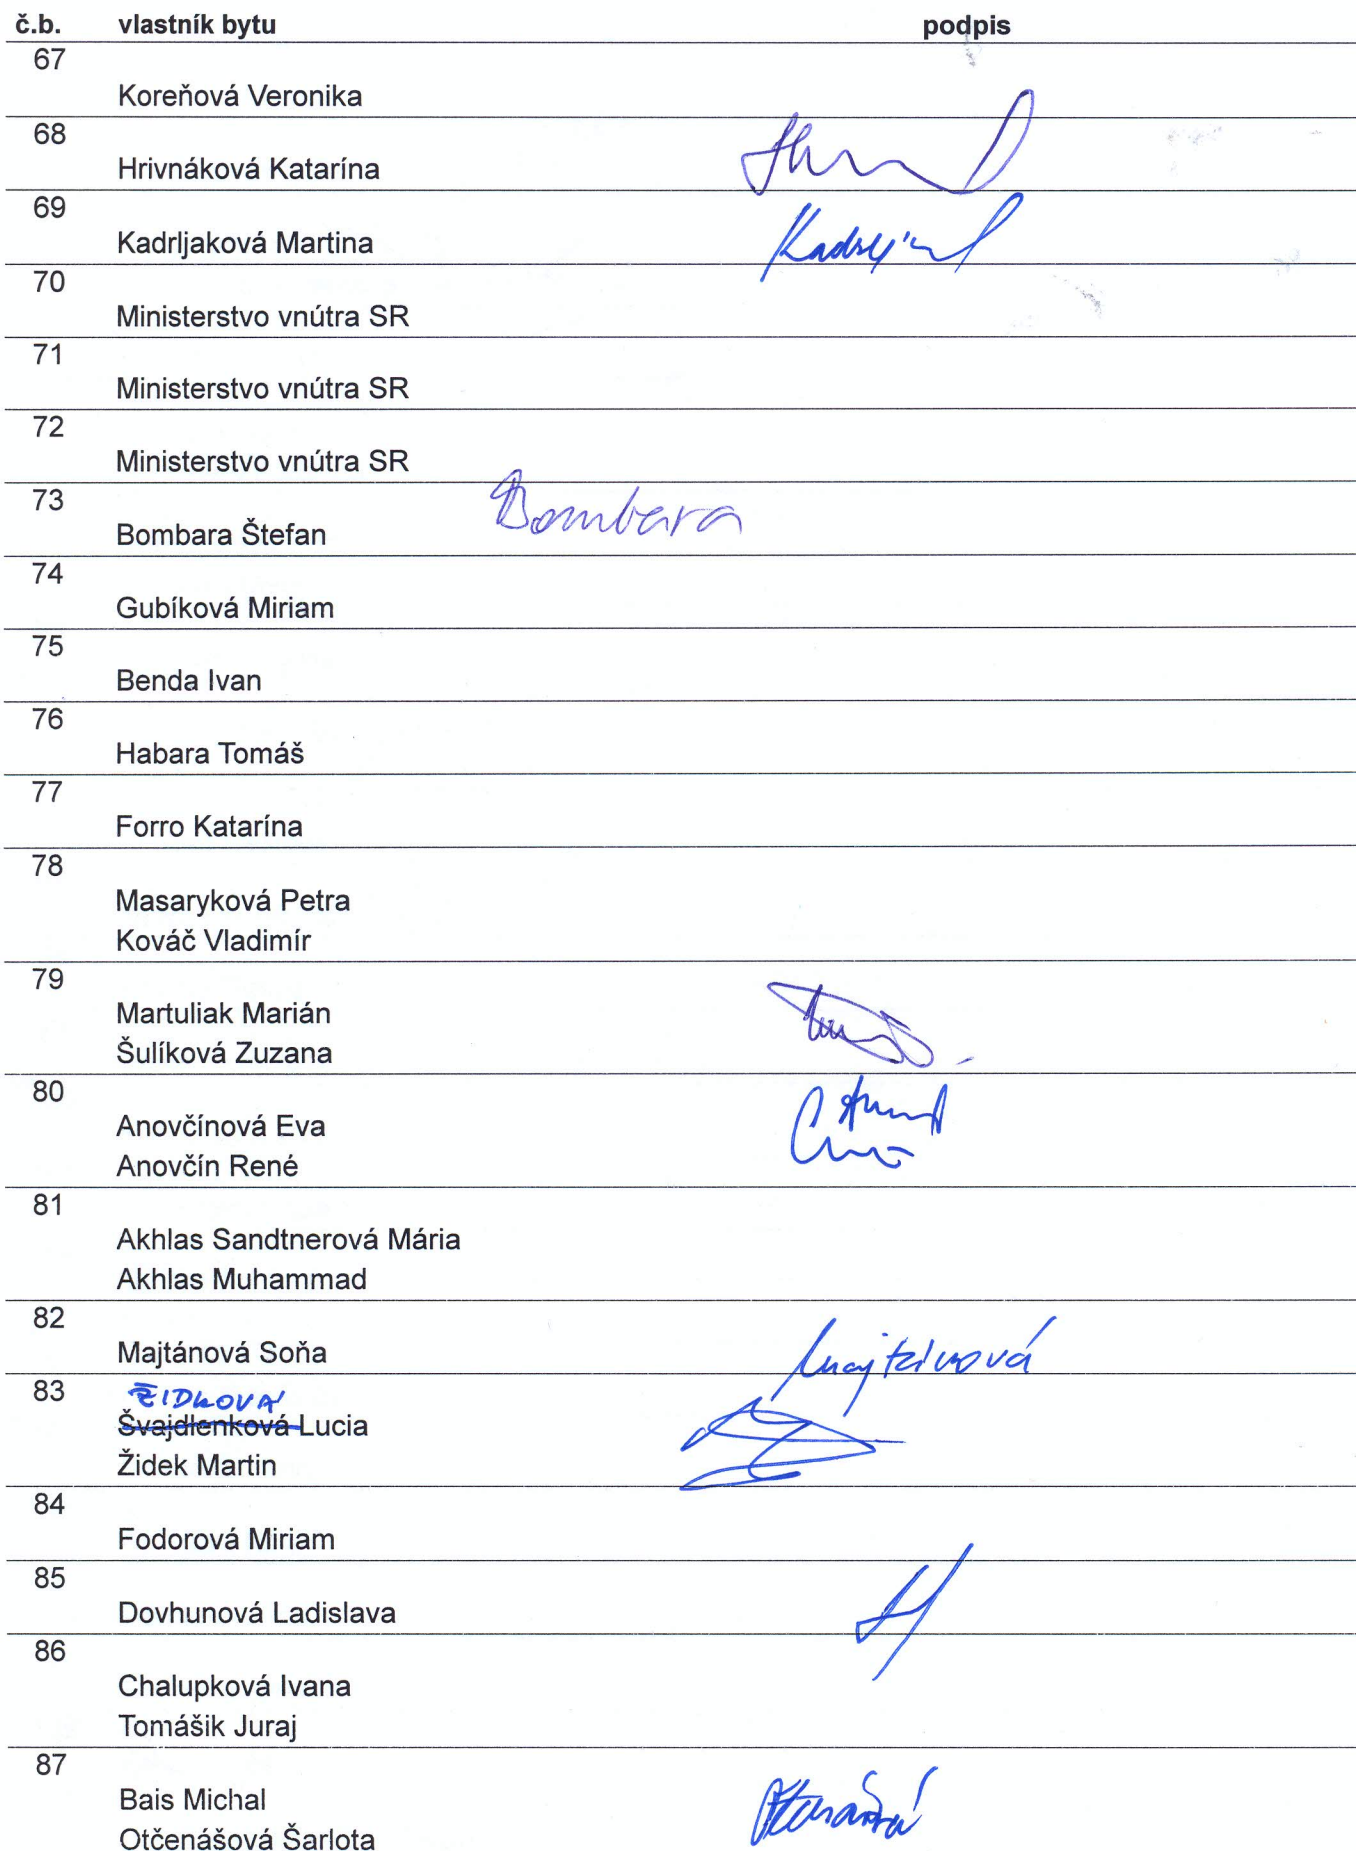 č.b. vlastník bytu podpis
67
Koreňová Veronika
68
Hrivnáková Katarína
69
Kadrljaková Martina
70
Ministerstvo vnútra SR
71
Ministerstvo vnútra SR
72
Ministerstvo vnútra SR
73
Bombara
Bombara Štefan
74
Gubíková Miriam
75
Benda Ivan
76
Habara Tomáš
77
Forro Katarína
78
Masaryková Petra
Kováč Vladimír
79
Martuliak Marián
Šulíková Zuzana
80
Anovčínová Eva
Anovčín René
81
Akhlas Sandtnerová Mária
Akhlas Muhammad
82
Majtánová Soňa Majtánová
83
ŽIDKOVÁ
Švajdlenková Lucia
Židek Martin
84
Fodorová Miriam
85
Dovhunová Ladislava
86
Chalupková Ivana
Tomášik Juraj
87
Bais Michal
Otčenášová Šarlota